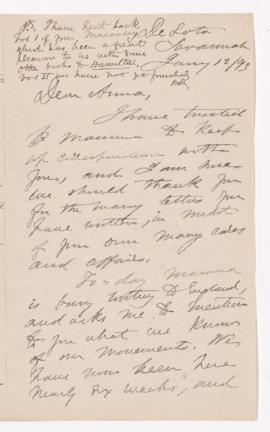 P.S. I have sent back
Vol I of your Macaulay
which has been a great
pleasure to us with some
other books to Hamilton
Vol II you have not yet finished
De Soto
Savannah
Jany 12/93
Dear Anna,
I have trusted
to Mamma to keep
up correspondence with
you, and I am sure
we should thank you
for the many letters you
have written, in midst
of your own many cares
and affairs.
To=day Mamma
is busy writing to England,
and asks me to mention
to you what we know
of our movements. We
have now been here
nearly six weeks, and